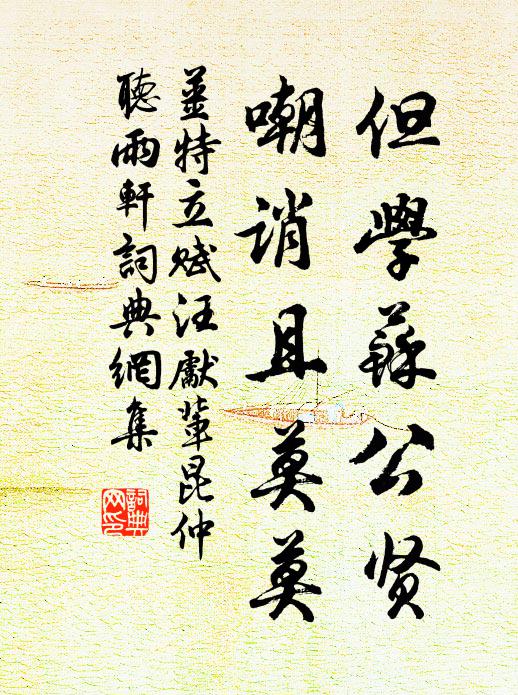 但學蘇公贤
嘲誚且莫莫
姜特立赋汪獻輩昆仲
聽雨軒詞典網集
詞典网印